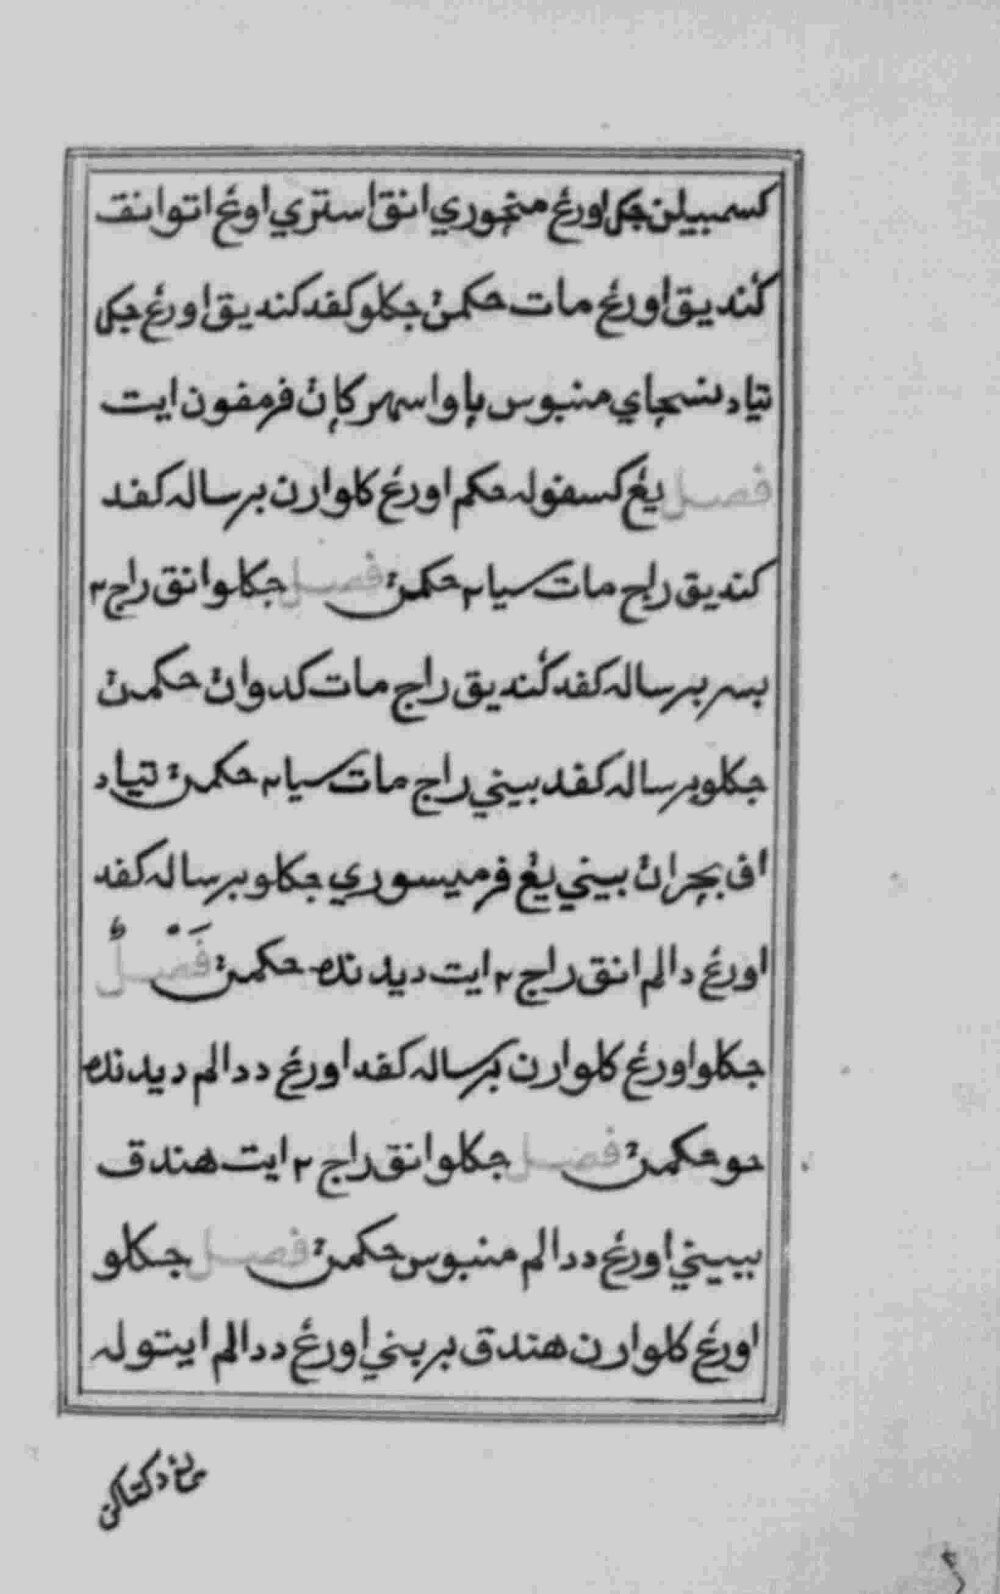 كسمبيلن جك اورڠ منچوري انق استري اورڠ اتو انق
ݢنديق اورڠ مات حكمنئ جكلو كفد كنديق اورڠ جك
تياد نسچاي منبوس ڽاوا سهركاڽ فرمفون ايت
فصل يڠ كسفوله حكم اورڠ كلوارن برساله كفد
كنديق راج مات سيا٢ حكمنئ فصل جكلو انق راج٢
بسر برساله كفد ݢنديق راج مات كدوانئ حكمنئ
جكلو برساله كفد بيني راج مات سيا٢ حكمنئ تياد
اف بچرانئ بيني يڠ فرميسوري جكلو برساله كفد
اورڠ دالم انق راج٢ ايت ديدنده حكمنئ فصل
جكلو اورڠ كلوارن برساله كفد اورڠ ددالم ديدنده
جو حكمنئ فصل جكلو انق راج٢ ايت هندق
ببيني اورڠ ددالم منبوس حكمنئ فصل جكلو
اورڠ كلوارن هندق بربني اورڠ ددالم ايتوله
دكتاكن